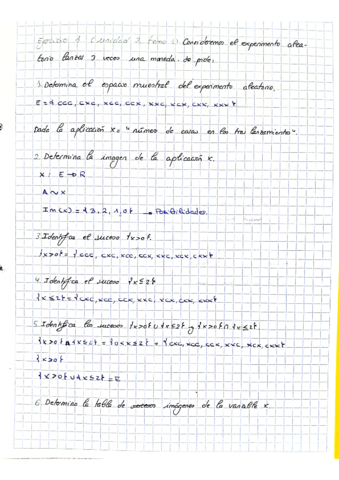 Ejercicio 1 (unidad 2, tomo 1) Consideremos el experimento alea-
torio lanzar 3 veces una moneda. Se pide:
1. Determina el espacio muestral del experimento aleatorio.
E = { ccc, cxc, xcc, ccx, xxc, xcx, cxx, xxx }
Dada la aplicación X = "número de caras en los tres lanzamientos".
2. Determina la imagen de la aplicación X.
X : E → R
A ~ X
Im (x) = { 3, 2, 1, 0 } → Posibilidades.
3. Identifica el suceso { x>0 }.
{ x>0 } = { ccc, cxc, xcc, ccx, xxc, xcx, cxx }
4. Identifica el suceso { x≤2 }
{ x≤2 } = { cxc, xcc, ccx, xxc, xcx, cxx, xxx }
5. Identifica los sucesos { x>0 } ∪ { x≤2 } y { x>0 } ∩ { x≤2 }
{ x>0 } ∩ { x≤2 } = { 0<x≤2 } = { cxc, xcc, ccx, xxc, xcx, cxx }
{ x>0 }
{ x>0 } ∪ { x≤2 } = E
6. Determina la tabla de imágenes de la variable X.